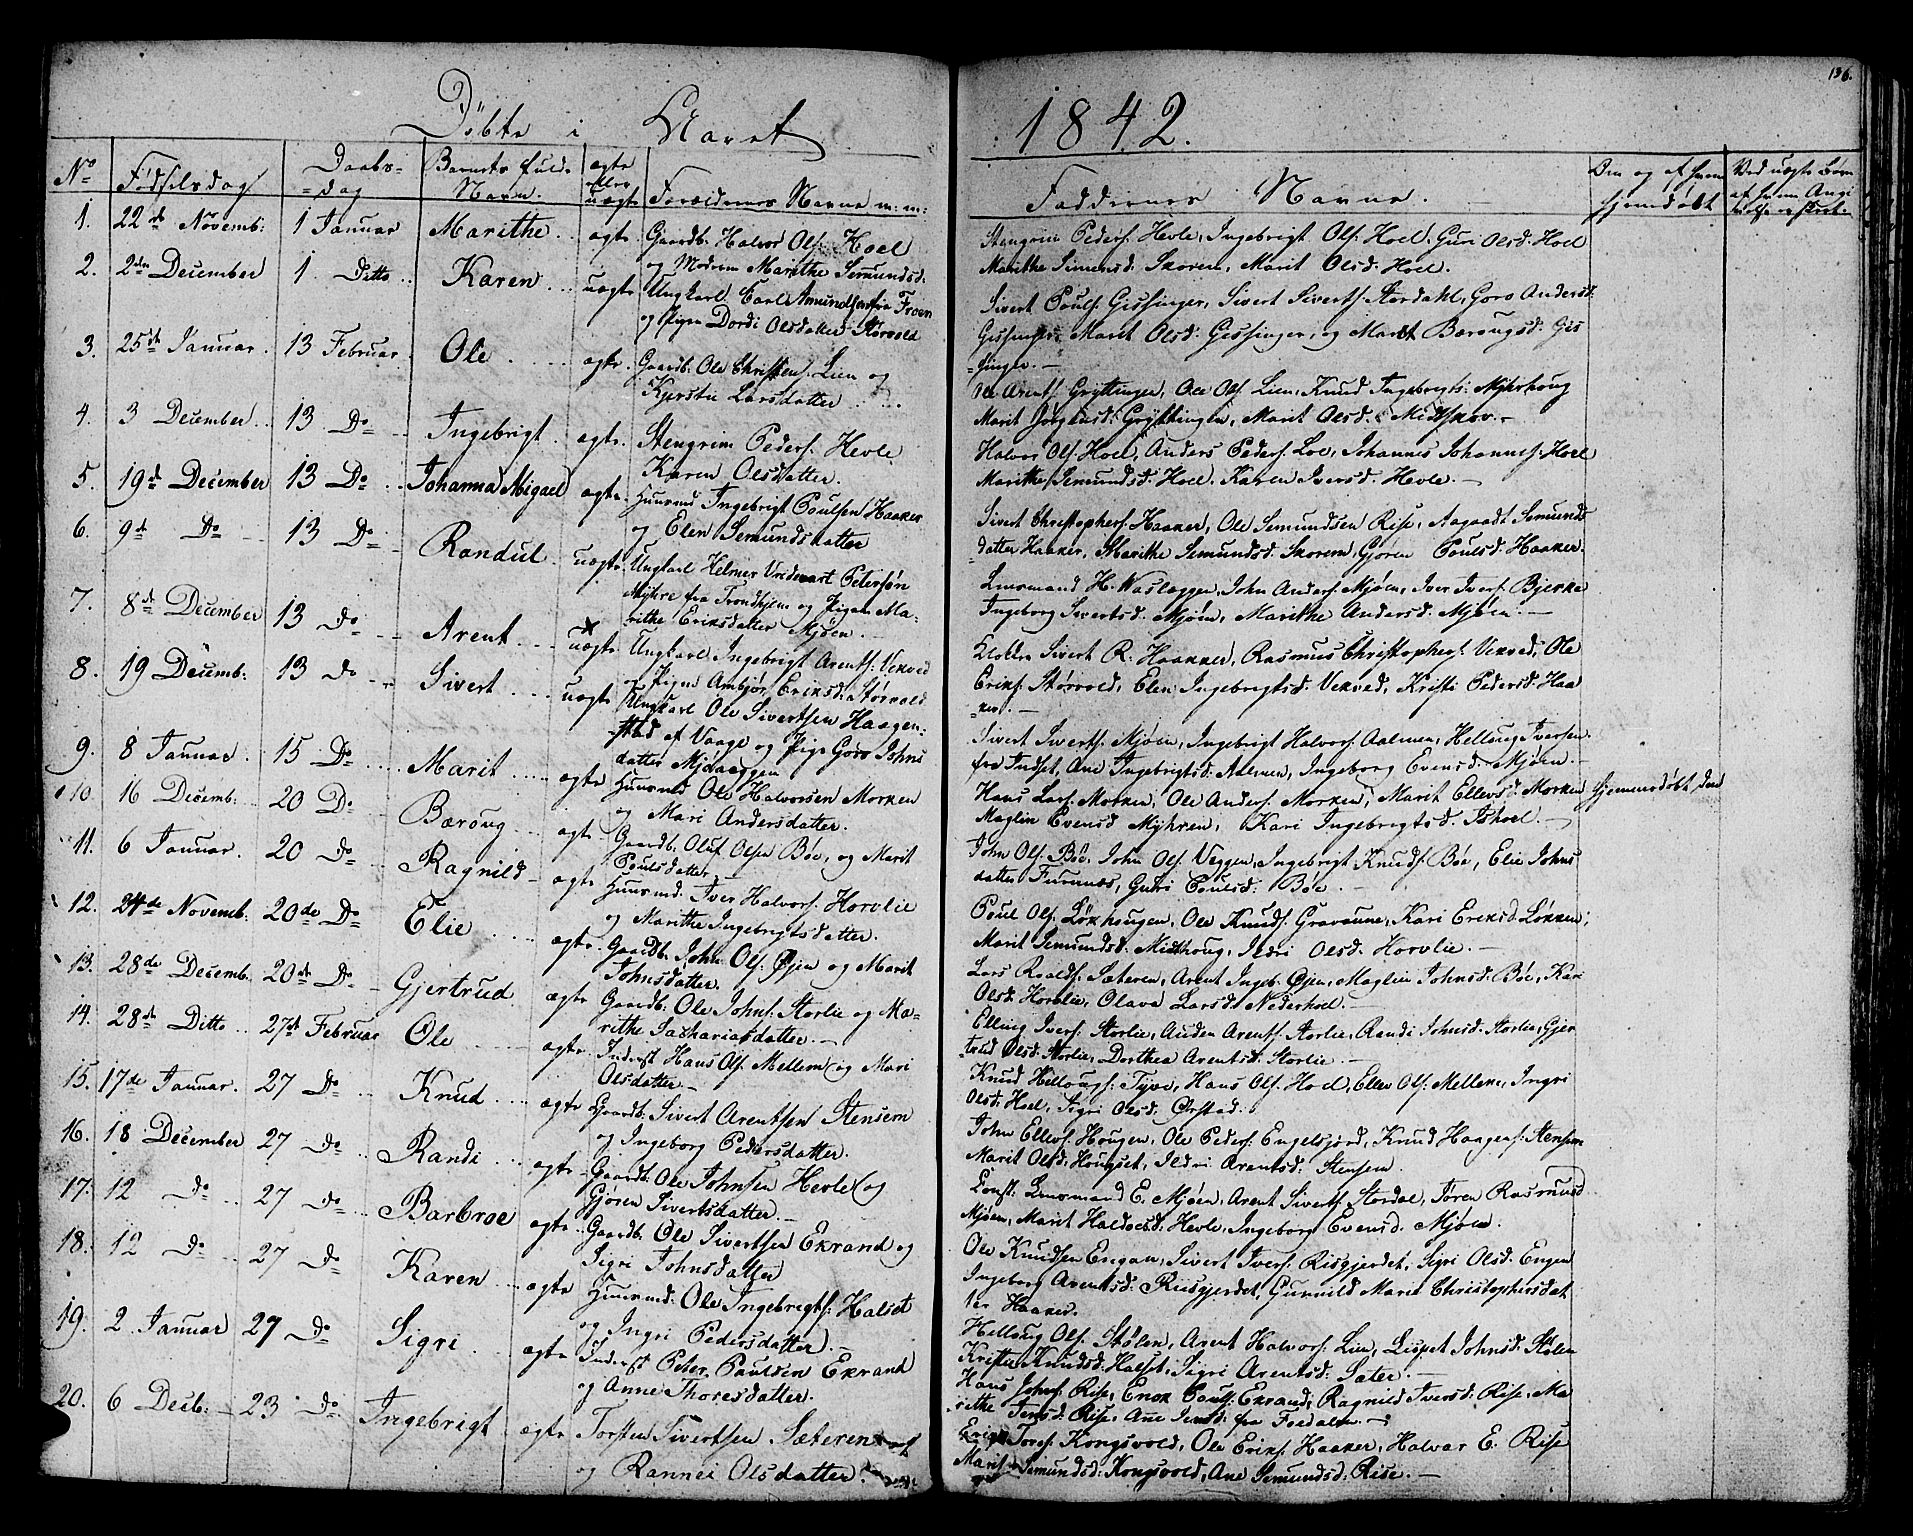 136.
Döbte i Aaret 1842.
No Födselsdag Daabs- Barnets fulde ægte Forældrenes Navne m: m: Faddernes Navne. Den og af hvem Ved uægte Børn
=dag Navn. eller hjemdøbt af hvem Angi
uægte
1. 22de Novemb: 1 Januar Marithe ægte Gaardb: Halvor Ols: Hoel
og Madram Marithe Semundsd:
Stengrim Peders: Hevle, Ingebrigt Ols: Hoel, Guri Olsd: Hoel
Marithe Simensd: Skoren, Marit Olsd: Hoel.
2. 2den December 1 Ditto Karen uægte Ungkarl Carl Amundsen fra Froen
og Pigen Dordi Olsdatter Störvold
Sivert Pouls: Gissinger, Sivert Siverts: Stordahl, Goro Andersd:
Gissinger, Marit Olsd: Gissinger, og Marit Bærougsd: Gis
=singer.-
3. 25de Januar. 13 Februar Ole ægte Gaardb: Ole Christen: Lien og
Kjersti Larsdatter
Ole Arents: Gryttinger, Ole Ols: Lien, Knud Ingebrigts: Myhrhoug
Marit Jörgensd: Gryttingen, Marit Olsd: Midtskov.-
4. 3 December 13 Do Ingebrigt ægte Stengrim Peders: Hevle
Karen Olsdatter.
Halvor Ols: Hoel, Anders Peders: Loe, Johannis Johannes: Hoel
Marithe Semundsd: Hoel, Karen Iversd: Hevle.-
5. 19de December 13 Do Johanna Migael ægte Huusmd: Ingebrigt Poulsen Haaker
og Elen Semundsdatter
Sivert Christophers: Haaker, Ole Semundsen Rise, Aagaadt Semunds
datter Haaker, Marithe Semundsd: Skorem, Gjören Poulsd: Haaker.
6. 9de Do 13 Do Randul uægte Ungkarl Helmer Petersön
Myhre fra Trondhjem og Pigen Ma-
rithe Eriksdatter Mjöen.-
Lensmand H. Wasleggen, John Anders: Mjöen, Iver Ivers: Bjerke
Ingeborg Sivertsd: Mjöen, Marithe Andersd: Mjöen.-
7. 8de December 13 Do Arent uægte Ungkarl Ingebrigt Arents: Vekved
og Pigen Ambjör Eriksd: Störvold
Klokker Sivert R: Haaker, Rasmus Christophers: Vekved, Ole
Eriks: Störvold, Elen Ingebrigtsd: Vekved, Kristi Pedersd: Haa
=ker.-
8. 19 Decemb: 13 do Sivert uægte Ungkarl Ole Sivertsen Haagen-
stad af Vaage og Pige Goro Johns
datter Mjöaeggen
Sivert Siverts: Mjöen, Ingebrigt Halvors: Aalmen, Helloug Iversen
fra Indset, Ane Ingebrigtsd: Aalmen, Ingeborg Evensd: Mjöen.-
9. 8 Januar. 15 Do Marit ægte Huusmd Ole Halvorsen Morken
og Mari Andersdatter.
Hans Lars: Morken, Ole Anders: Morken, Marit Ellevsd: Morken
Maglin Evensd Myhren, Kari Ingebrigtsd. Ishoel.-
hjemmedöbt den
10. 16 Decemb: 20 Do Bæroug ægte Gaardb: Oluf Olsen Böe, og Marit
Poulsdatter
John Ols: Böe, John Ols: Veggen, Ingebrigt Knuds: Böe, Elie Johns
datter Furunæs, Guri Poulsd: Böe.-
11. 6 Januar. 20 Do Ragnild ægte Huusmd: Iver Halvors: Horvlie
og Marithe Ingebrigtsdatter.
Poul Ols: Lökhougen, Ole Knuds: Gravaune, Kari Eriksd: Lökken,
Marit Semundsd: Midthoug, Ildri Olsd: Horvlie.-
12. 24de Novemb: 20de Do Elie ægte Gaardb: John Ols: Öjen og Marit
Johnsdatter.
Lars Roalds: Sæteren, Arent Ingeb: Öjen, Maglin Johnsd: Böe, Kari
Olsd: Horvlie, Olava Larsd: Nederhoel.-
13. 28de Decemb: 20de Do Gjertrud ægte Gaardb: Ole Johns: Storlie og Ma-
rithe Zachariasdatter.-
Elling Ivers: Storlie, Auden Arents: Storlie, Randi Johnsd: Storlie, Gjer
=trud Olsd: Storlie, Dorthea Arentsd: Storlie.-
14. 28de Ditto 27de Februar Ole ægte Inderst Hans Ols: Mellem og Mari
Olsdatter-
Knud Hellougs: Tyve, Hans Ols: Hoel, Ellev Ols: Mellem, Ingri
Olsd: Hoel, Sigri Olsd: Örstad.
15. 17de Januar. 27 Do Knud ægte Gaardb: Sivert Arentsen Stensem
og Ingeborg Pedersdatter.
John Ellevs: Hougen, Ole Peders: Engelsjord, Knud Haagens: Stensem
Marit Olsd: Hougset, Ildri Arentsd: Stensem.
16. 18 December 27 Do Randi ægte Gaardb: Ole Johnsen Hevle og
Gjören Sivertsdatter.-
Const: Lensmand E. Mjöen, Arent Siverts: Stordal, Tören Rasmusd
Mjöen, Marit Haldosd: Hevle, Ingeborg Evensd: Mjöen.
17. 12 Do 27 Do Barbroe ægte Gaardb: Ole Sivertsen Ekrand og
Sigri Johnsdatter
Ole Knudsen Engan, Sivert Ivers: Risgjerdet, Sigri Olsd: Engen
Ingeborg Arentsd: Riisgjerdet, Gunnild Marie Christophersdat
ter Haaker.
18. 12 Do 27 Do Karen ægte Huusmd: Ole Ingebrigts: Halset
og Ingri Pedersdatter.-
Helloug Ols: Stölen, Arent Halvors: Lien, Lispet Johnsd: Stölen
Kristie Knudsd: Halset, Sigri Arentsd: Sæter.-
19. 2 Januar 27 Do Sigri ægte Inderst Peter Paulsen Ekrand
og Anne Thoresdatter.
Hans Johns: Rise, Enok Pouls: Ekrand, Ragnild Iversd: Rise, Ma
rithe Jensd: Rise, Ane Jensd: fra Foldalen.-
20. 6 Desb: 23 Do Ingebrigt ægte Torsten Sivertsen Sæteren
og Rannei Olsdatter.
Tores: Kongsvold, Ole Eriks: Haaker, Halvar E. Rise
Marit Semundsd: Kongsvold, Ane Semundsd: Rise.-